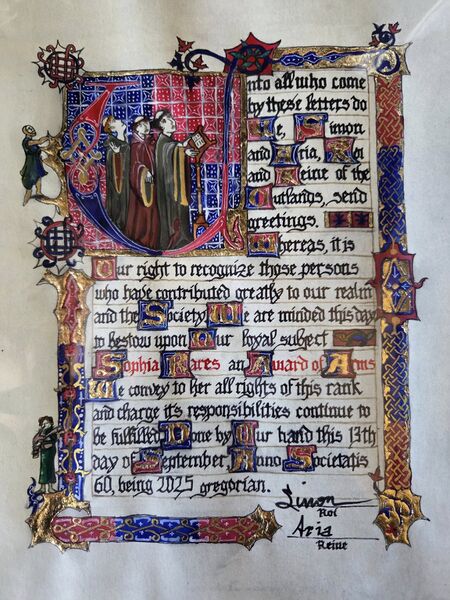 Unto all who come
by these letters do
We, Simon
and Aria, Roi
and Reine of the
Outlands, send
greetings.
Whereas, it is
Our right to recognize those persons
who have contributed greatly to our realm
and the Society, We are minded this day
to bestow upon Our loyal subject
Sophia Rares an Award of Arms
We convey to her all rights of this rank
and charge its responsibilities continue to
be fulfilled Done by Our hand this 13th
day of September Anno Societatis
60, being 2025 gregorian.
Simon
Roi
Aria
Reine